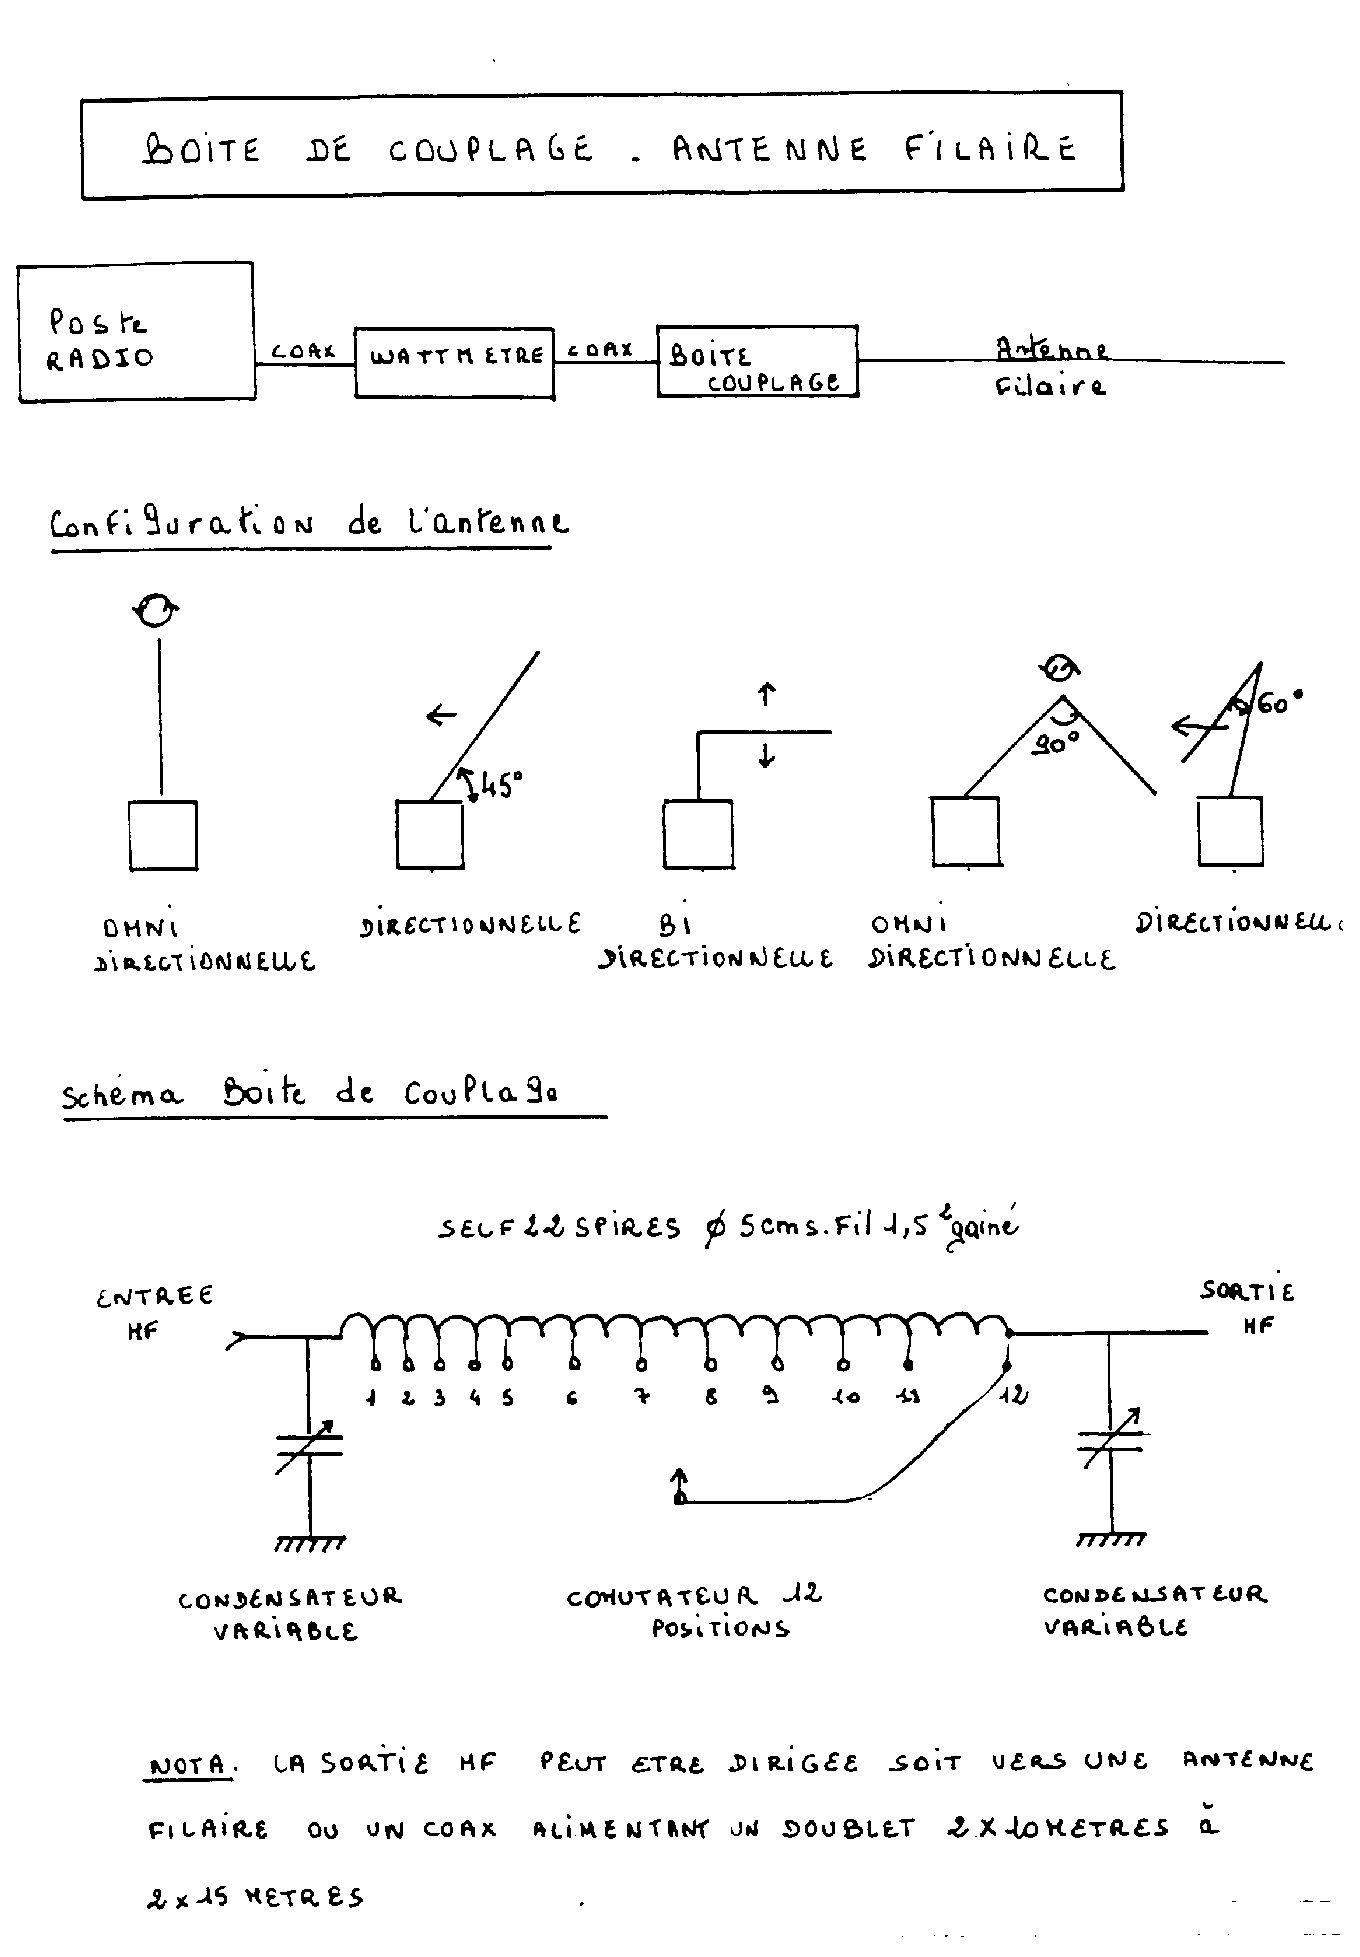 BOITE DE COUPLAGE . ANTENNE FILAIRE
Poste
RADIO
COAX
WATTMETRE
COAX
BOITE
COUPLAGE
Antenne
Filaire
Configuration de l'antenne
45°
90°
60°
OMNI
DIRECTIONNELLE
DIRECTIONNELLE
BI
DIRECTIONNELLE
OMNI
DIRECTIONNELLE
DIRECTIONNELL
Schéma Boite de Couplage
SELF 22 SPIRES ø 5cms. Fil 1,5² gainé
ENTREE
HF
SORTIE
HF
1 2 3 4 5 6 7 8 9 10 11 12
CONDENSATEUR
VARIABLE
COMUTATEUR 12
POSITIONS
CONDENSATEUR
VARIABLE
NOTA. LA SORTIE HF PEUT ETRE DIRIGEE SOIT VERS UNE ANTENNE
FILAIRE OU UN COAX ALIMENTANT UN DOUBLET 2 X 10 METRES à
2 x 15 METRES